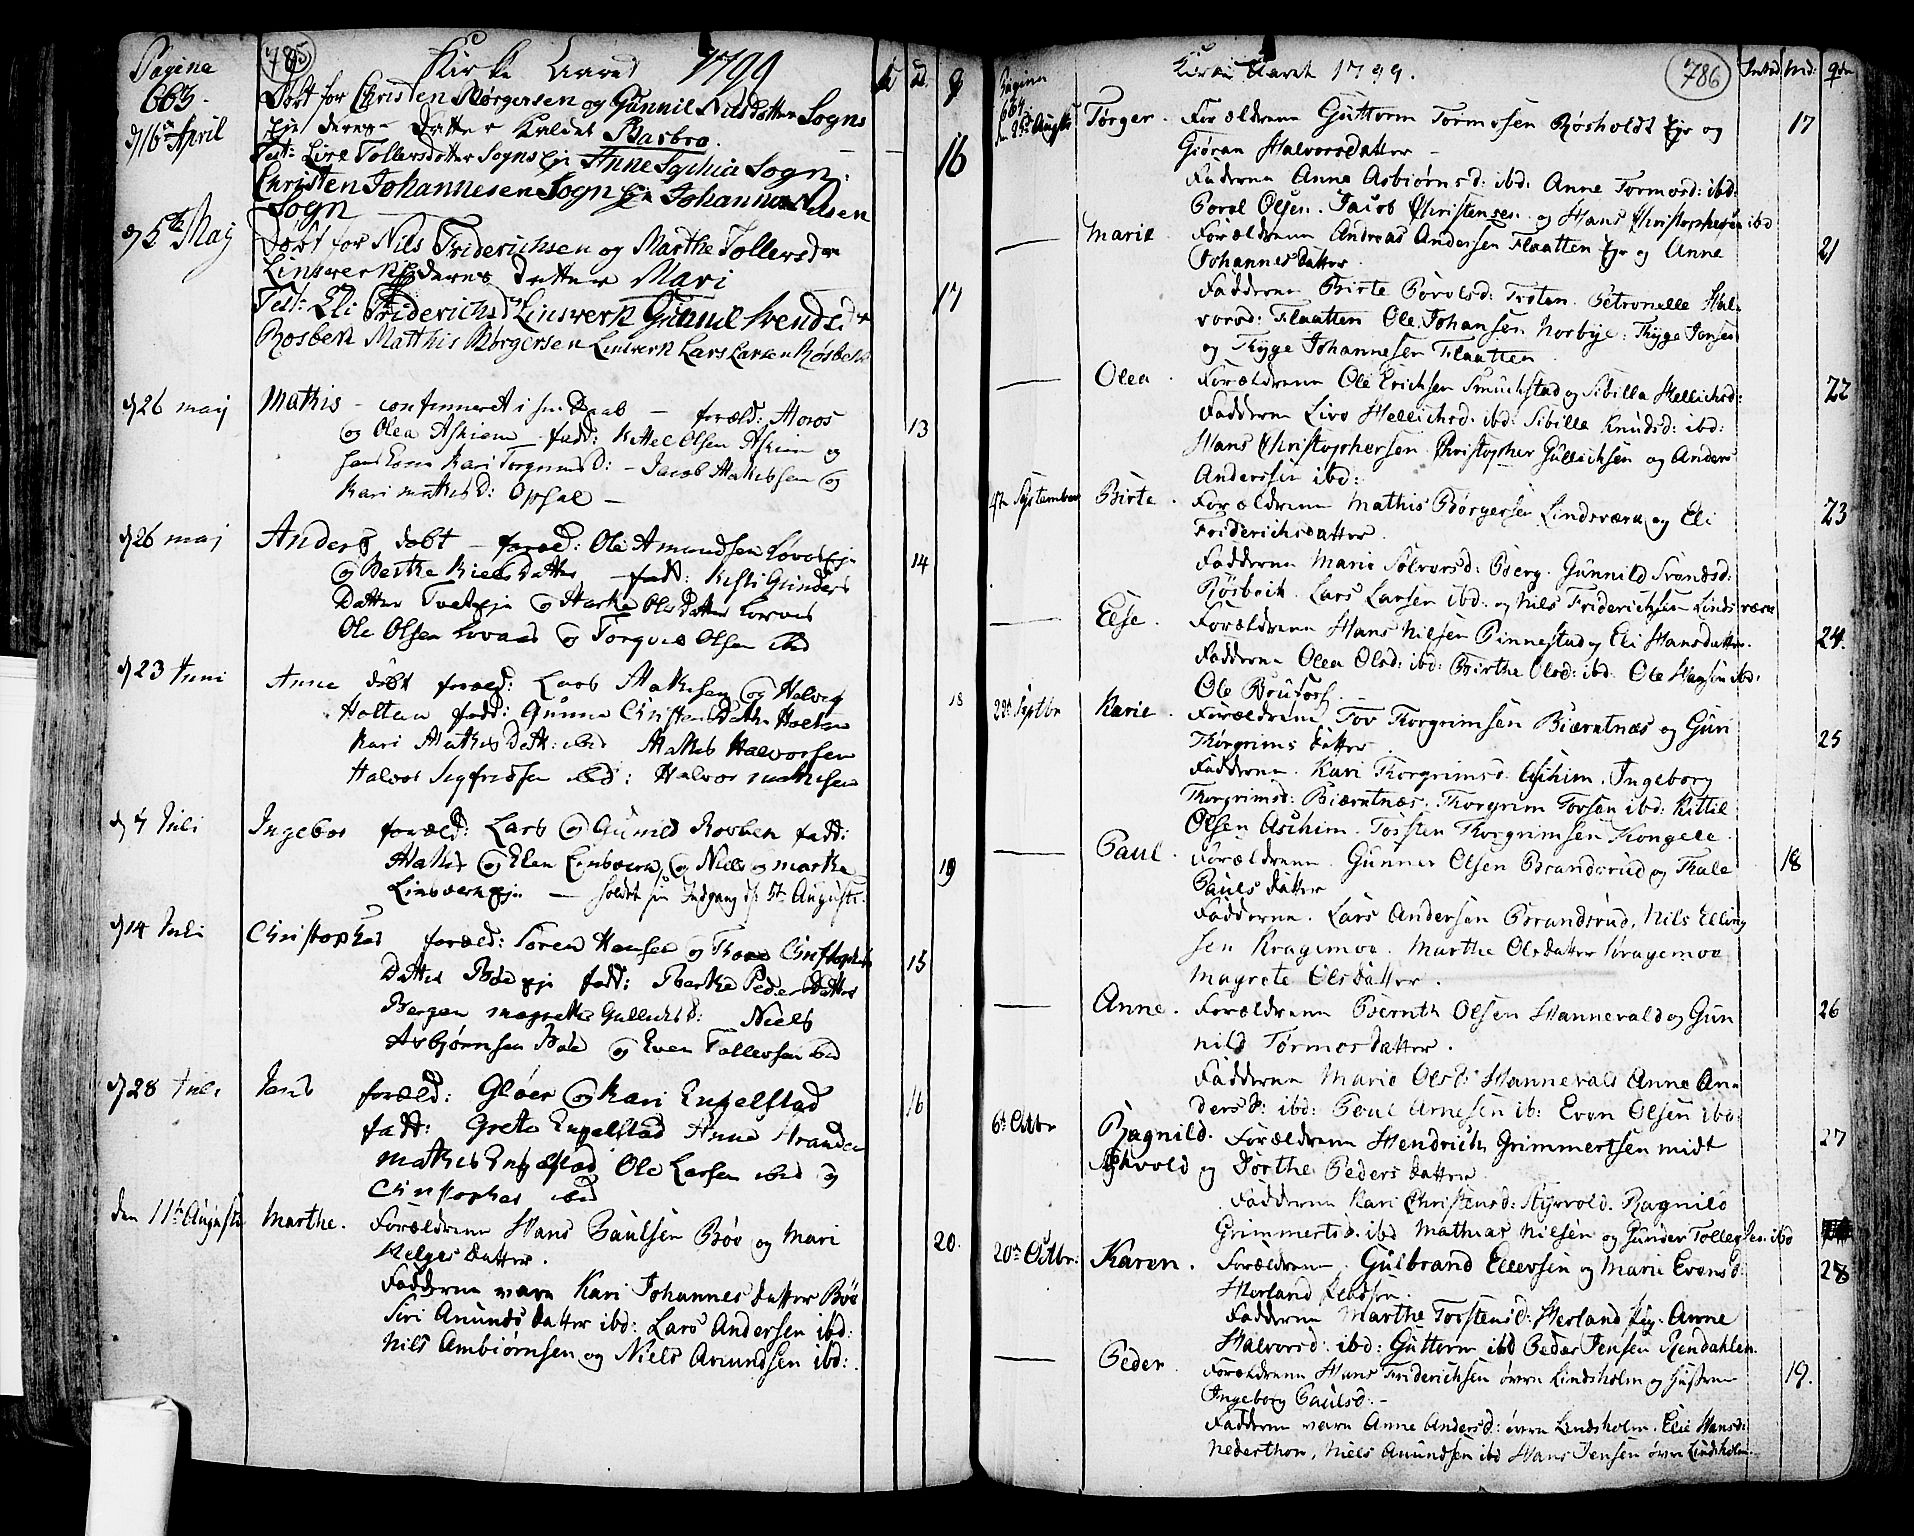 Pagina
663.
785
Kirke Aaret 1799
D. 9
Døbt for Christen Børgersen og Gunnil Nilsdatter Sogns
d 16 April
Eje deres Datter kaldet Barbro.
16
Test: Live Tollersdatter Sogns Eje Anne Sophia Sogn.
Christen Johannesen Sogn Eje Johannes Nilsen
Sogn
d 5te Maj
Døbt for Nils Friderichsen og Marthe Tollersdr
Linswerk Eje deres datter Mari
17
Test: Eli Friderichsd Linswerk Gunnil Svendsd
Rosbek Matthis Børgersen Linswerk Lars Larsen Røsbek
d 26 maj
Mathis - confirmeret i sin Daab - foræld: Amos
13
og Olea Askiem fadd: Kittel Olsen Askim og
hans Kone Kari Torgrimsd: - Jacob Mathissen og
Kari mathisd: Opsal -
d 26 maj
Anders døbt - foræld: Ole Amundsen Lovas Eje
14
og Berthe Nielsdatter - fadd: Kisti Gunders
Datter Tvet Eje og Marthe Olsdatter Lovas
Ole Olsen Lovaas og Torgus Olsen ibd
d 23 Juni
Anne døbt foræld: Lars Mathisen og Halvog
18
Holtan fadd: Gunne Christensdatter Holtan
Kari Mathisdatt: ibid Mathis Halvorsen
Halvor Sigfredsen ibd: Halvor mathisen
d 7 Juli
Ingebor foræld: Lars og Gunild Rosbek fadd:
19
Mathis og Elen Linsværk og Niels og marthe
Linsværk Eje - holdt sin Indgang d. 5te Augusti
d 14 Juli
Christopher foræld: Søren Hansen og Thore Christophers
15
datter Bøe Eje fadd: Berthe Pedersdatter
Bergan magrethe Gullichsd: Niels
Asbjørnsen Bøe og Even Tollevsen ibd
d 28 Juli
Jens foræld: Gløer og Kari Engelstad
16
fadd: Grete Engelstad Anne Stranden
Mathis Engelstad Ole Larsen ibd og
Christopher ibd
den 11te Augusti
Marthe. Forældrene Hans Paulsen Bøe og Mari
20.
Helgesdatter.
Fadderne vare Kari Johannesdatter Bøe
Siri Amundsdatter ibd: Lars Andersen ibd:
Nils Ambiørnsen og Niels Amundsen ibd:
Pagina
664.
Kirke Aaret 1799.
786
25de Augusti
Tørger. Forældrene Guttorm Tormosen Røsholdt Eje og
17
Giøran Halvorsdatter -
Fadderne Anne Asbiørnsd: ibd: Anne Tormosd: ibd:
Povel Olsen. Jacob Christensen og Hans Christophersen ibd
Marie Forældrene Andreas Andersen Flaatten Eje og Anne
21
Johannesdatter.
Fadderne Birte Povelsd: Troten. Petronelle Hal-
vorsd: Flaatten Ole Johansen Norbye: Thyge Jensen
og Thyge Johannesen Flaatten.
Olea. Forældrene Ole Erichsen Smuchstad og Sibilla Hellichsd:
22
Fadderne Live Hellichsd: ibd: Sibille Knudsd: ibd:
Hans Christophersen Christopher Gullichsen og Anders
Anderssen ibd:
September
Birte. Forældrene Mathis Børgersen Lindsværk og Eli
23
Friderichsdatter.
Fadderne Marie Sølversd: Berg. Gunnild Svendsd:
Røsbeck. Lars Larsen ibd. og Nils Friderichsen Lindsværk
Else. Forældrene Hans Nilsen Pinnestad og Eli Hansdatter.
24.
Fadderne Olea Olsd: ibd: Birthe Olsd: ibd. Ole Hansen ibd:
Ole Boufos.
29de Septbr
Karie. Forældrene Tov Thorgrimsen Biærntnæs og Guri
25
Thorgrimsdatter.
Fadderne. Kari Thorgrimsd. Aschim. Ingeborg
Thorgrimsd: Biærntnæs. Thorgrim Torsen ibd: Kittil
Olsen Aschim. Torsten Thorgrimsen Kongele.
Paul. Forældrene. Gunner Olsen Brandsrud og Thale
18
Paulsdatter
Fadderne. Lars Andersen Brandsrud. Nils Elling
sen Kragemoe. Marthe Olsdatter Kragemoe
Magrete Olsdatter.
Anne. Forældrene Bernth Olsen Hannevald og Gun
26
nild Tormosdatter.
Fadderne Marie Olsd: Hannevald Anne An-
dersd: ibd: Poul Arnesen ib: Even Olsen ibd:
6te Octbr
Ragnild. Forældrene Hendrich Grimmertsen midt
27
og Dorthe Pedersdatter.
Fadderne Kari Christensd: Styrvold. Ragnild
Grimmertsd. ibd Mathias Nilsen og Gunder Tollefsen ibd
20de Octbr.
Karen. Forældrene. Gulbrand Ellevsen og Marie Evensd:
28
Herland
Fadderne Marthe Torstensd: Herland Eje. Anne
Halvorsd: ibd: Guttorm ibd Peder Jensen Rendahlen.
Peder Forældrene Hans Friderichsen øvre Lindsholm og Hustrue
19.
Ingeborg Paulsd: -
Fadderne vare Anne Andersd: øvere Lindsholm. Elie Hansd:
nederthon, Niels Amundsen ibd Hans Jensen øvre Lindsholm.